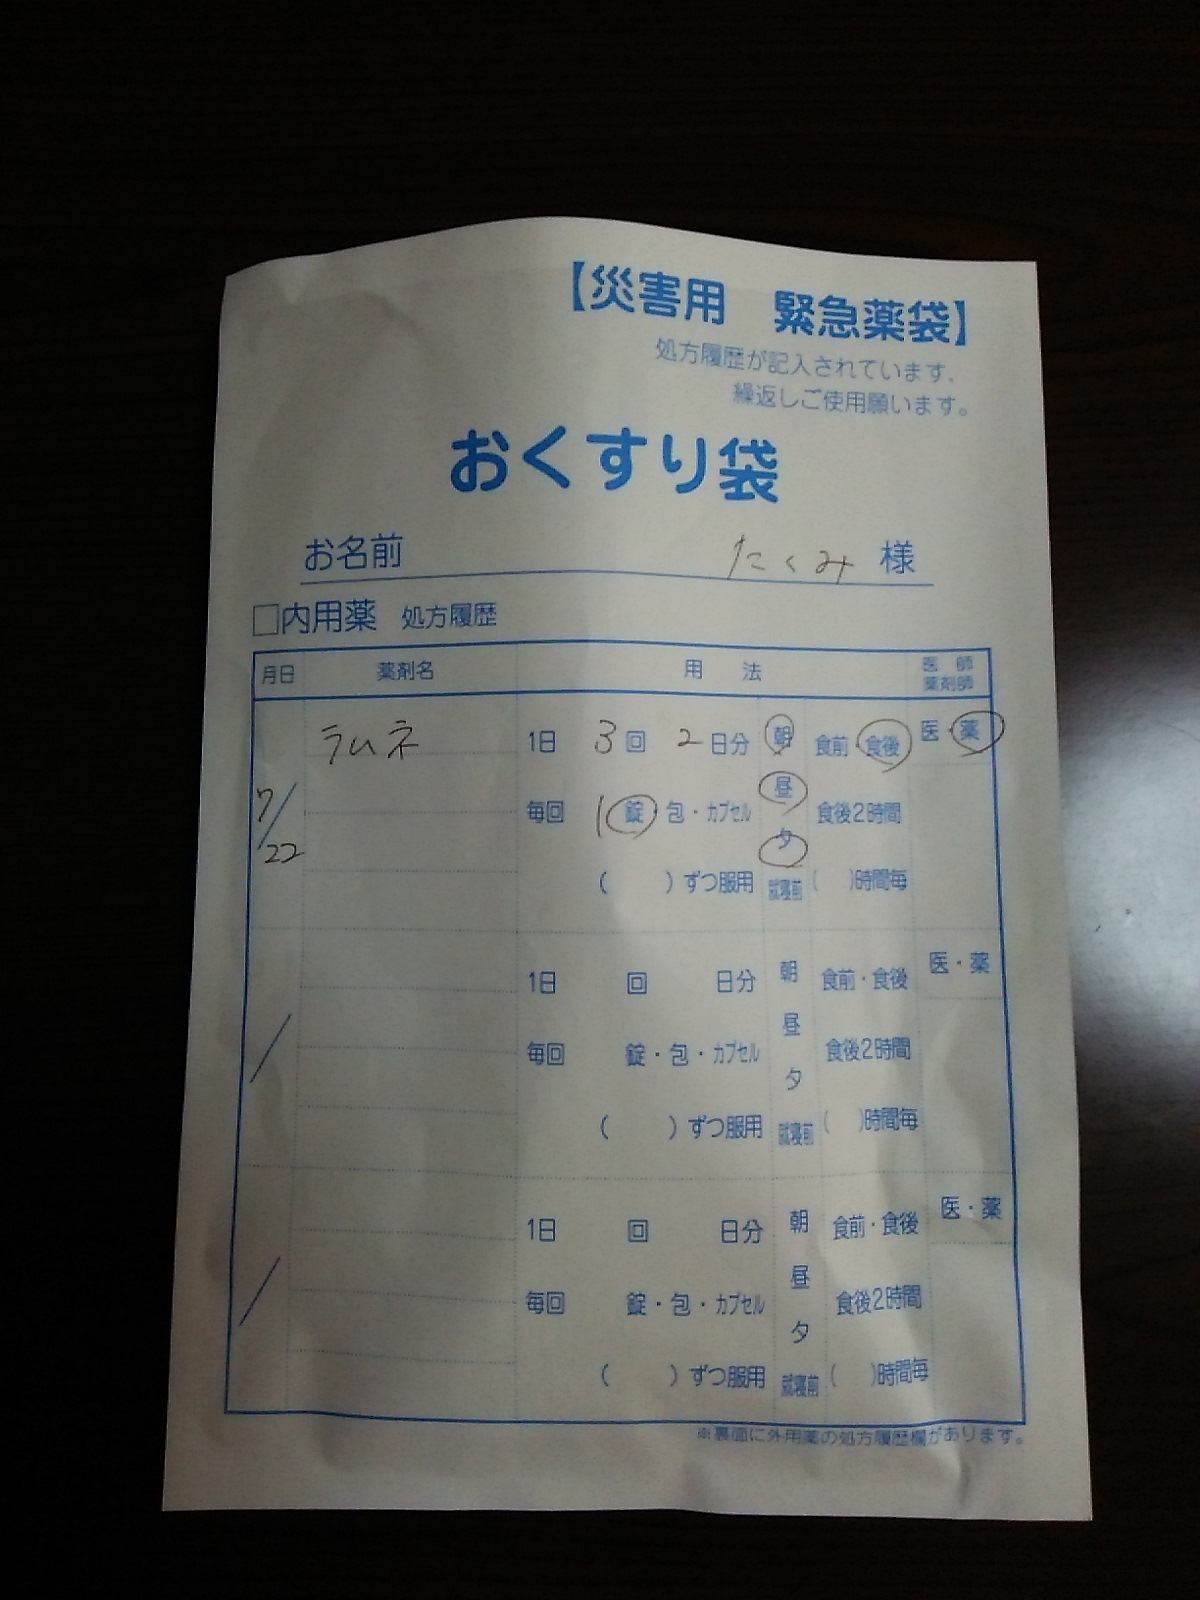 【災害用　緊急薬袋】
処方履歴が記入されています、
繰返しご使用願います。
おくすり袋
お名前 たくみ 様
□内用薬 処方履歴
月日 薬剤名 用法 医師 薬剤師
7/22 ラムネ 1日 3回 2日分 朝 食前・食後 医・薬
昼
毎回 1錠・包・カプセル 食後2時間
夕
( )ずつ服用 就寝前 ( )時間毎
/ 1日 回 日分 朝 食前・食後 医・薬
昼
毎回 錠・包・カプセル 食後2時間
夕
( )ずつ服用 就寝前 ( )時間毎
/ 1日 回 日分 朝 食前・食後 医・薬
昼
毎回 錠・包・カプセル 食後2時間
夕
( )ずつ服用 就寝前 ( )時間毎
※裏面に外用薬の処方履歴欄があります。